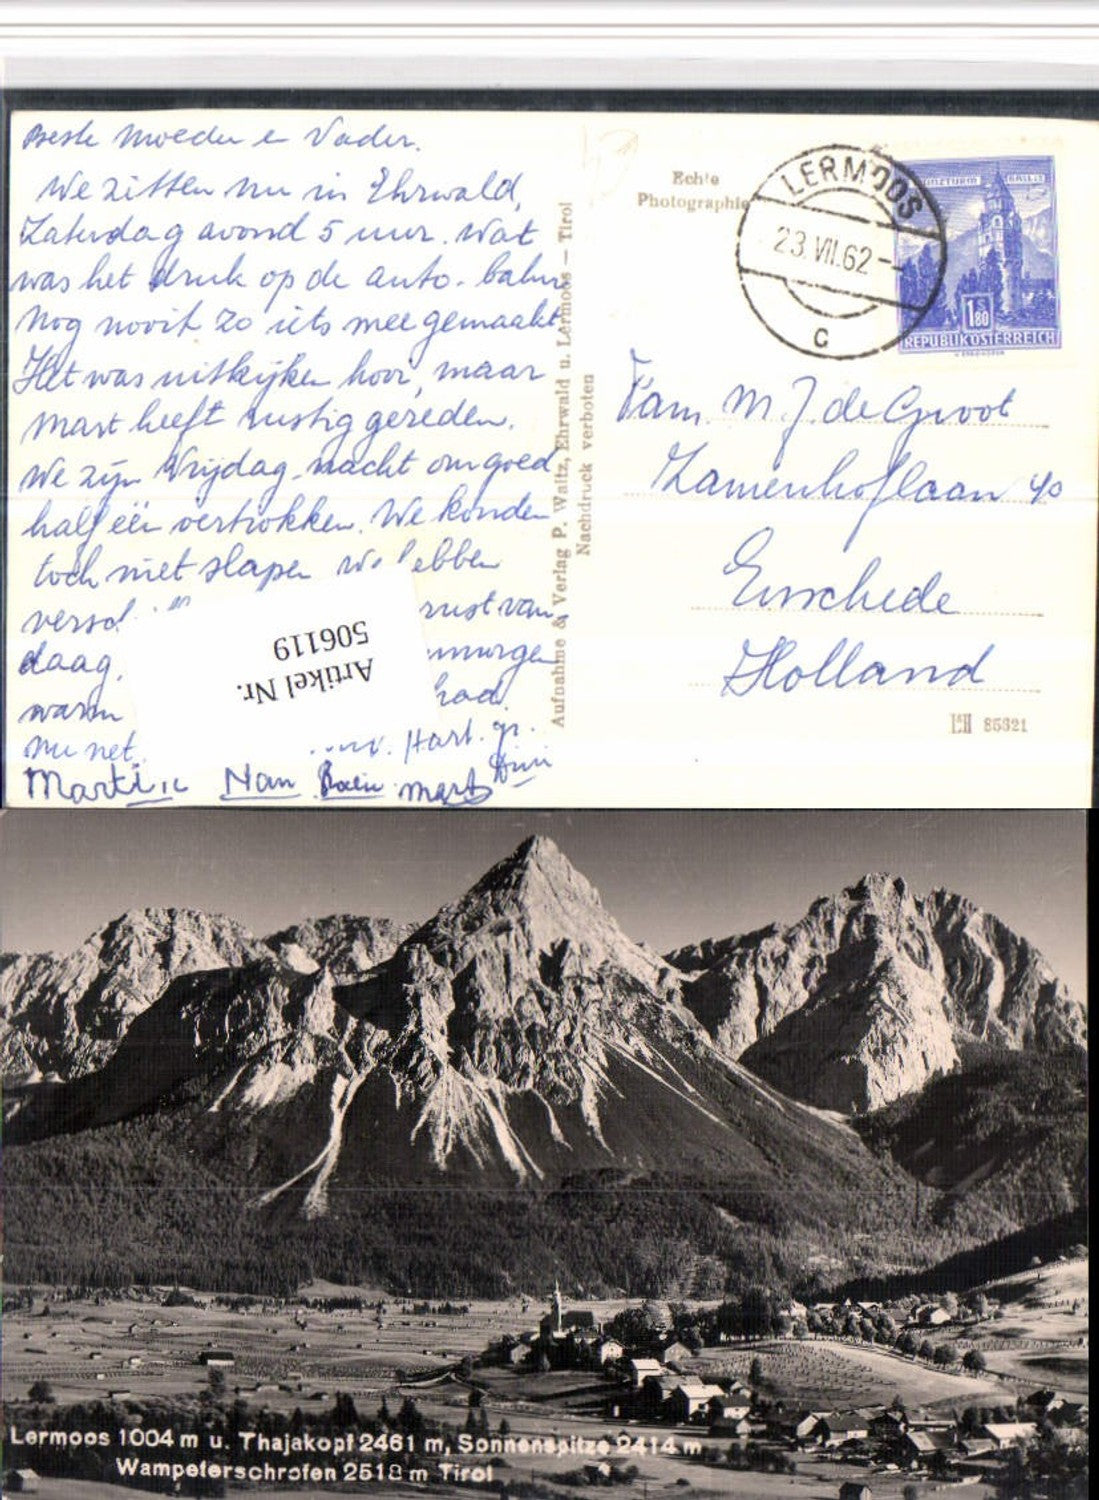 Beste Moeder en Vader.
We zitten nu in Ehrwald,
Zaterdag avond 5 uur. Wat
was het druk op de auto-bahn
Nog nooit zo iets mee gemaakt
Het was uitkijken hoor, maar
Mart heeft rustig gereden.
We zijn Vrijdag nacht om goed
half één vertrokken. We konden
toch niet slapen We hebben
rust van
daag.
warm
nu net Hart. gr.
Martin Nan Mart Dini
Artikel Nr.
506119
Aufnahme & Verlag P. Waitz, Ehrwald u. Lermoos – Tirol
Nachdruck verboten
Echte
Photographie
LERMOOS
23.VII.62
C
MÜNZTURM HALL i.T.
1.80
REPUBLIK ÖSTERREICH
Fam. M. J. de Groot
Zamenhoflaan 40
Enschede
Holland
85321
Lermoos 1004 m u. Thajakopf 2461 m, Sonnenspitze 2414 m
Wampeterschrofen 2518 m Tirol